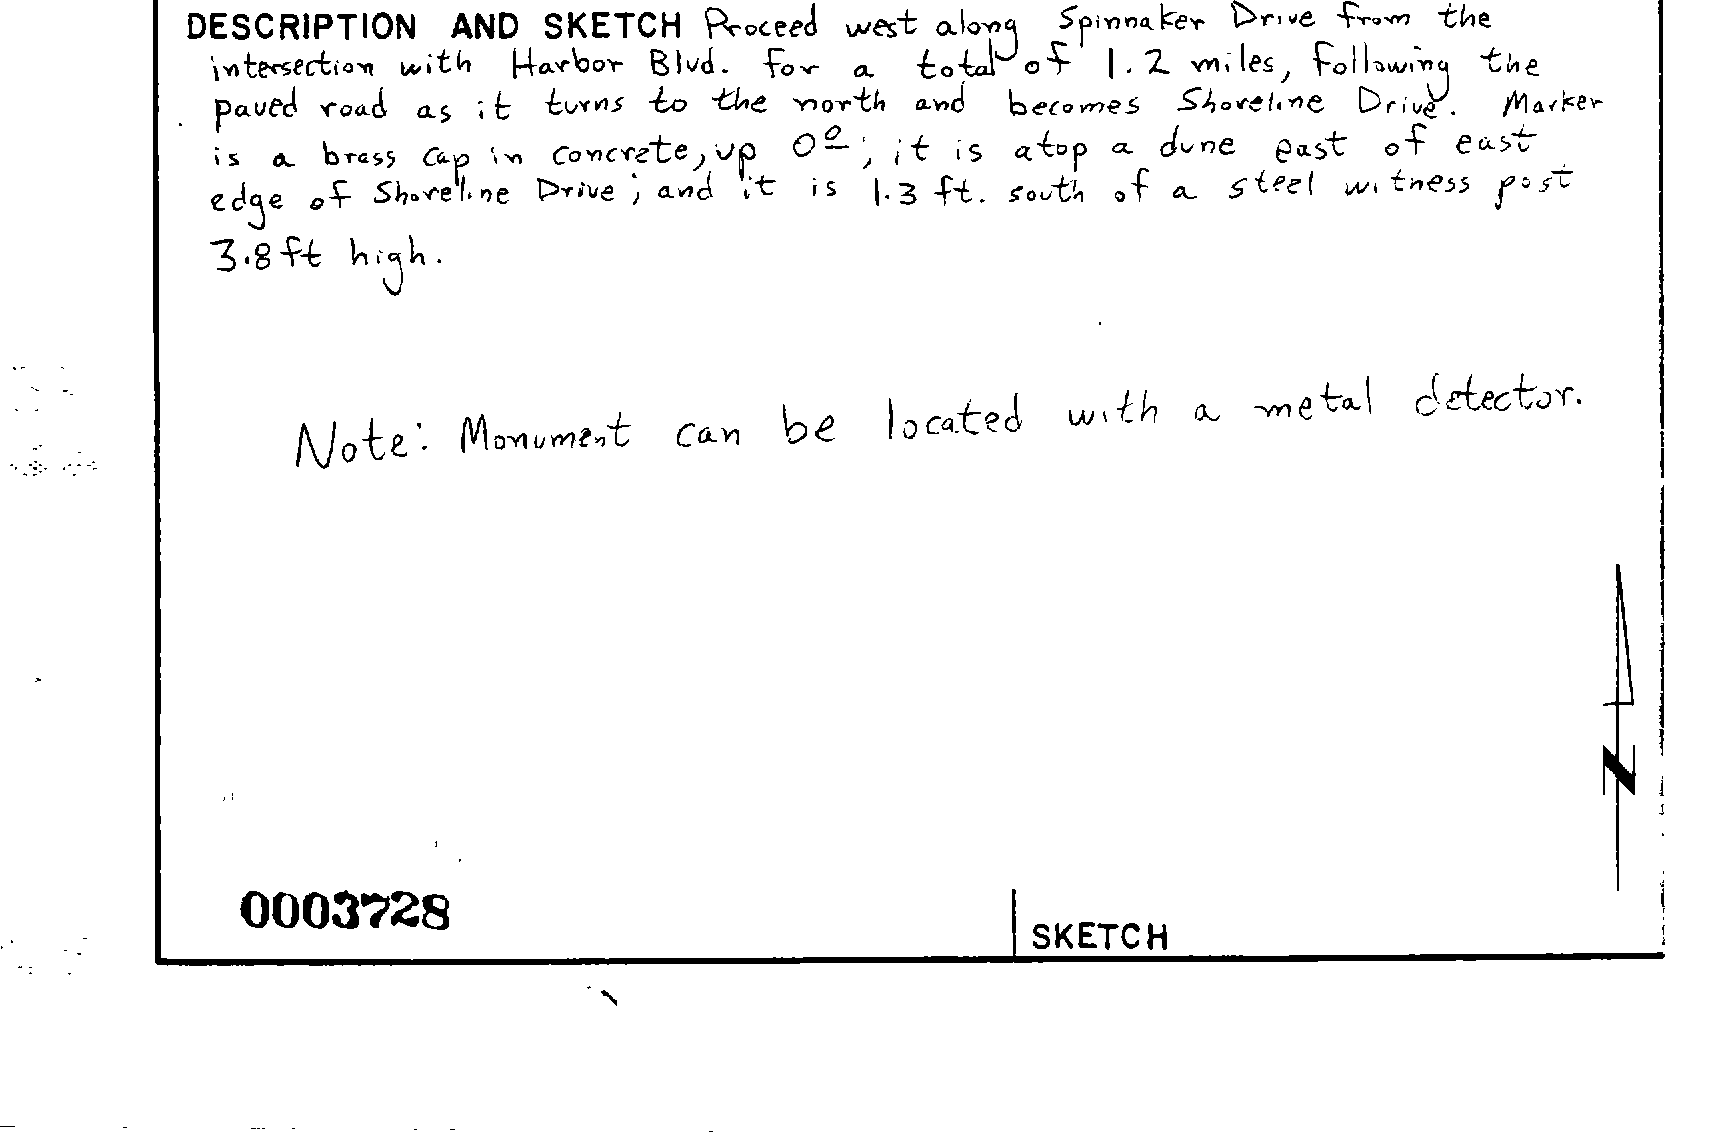 DESCRIPTION AND SKETCH Proceed west along Spinnaker Drive from the
intersection with Harbor Blvd. for a total of 1.2 miles, following the
paved road as it turns to the north and becomes Shoreline Drive. Marker
is a brass cap in concrete, up 0º; it is atop a dune east of east
edge of Shoreline Drive; and it is 1.3 ft. south of a steel witness post
3.8 ft high.
Note: Monument can be located with a metal detector.
N
0003728
SKETCH